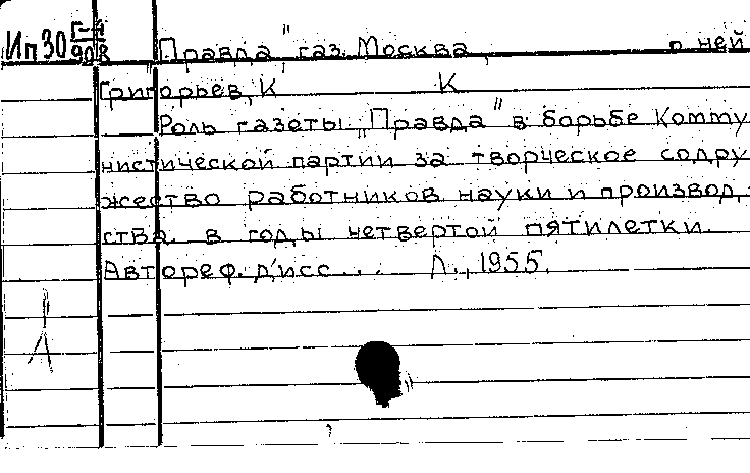 Ип30 Г-4/908 "Правда", газ. Москва, о ней
Григорьев, К К
Роль газеты „Правда" в борьбе Комму
нистической партии за творческое содру
жество работников науки и производ-
ства в годы четвертой пятилетки.
Автореф. дисс... Л., 1955.